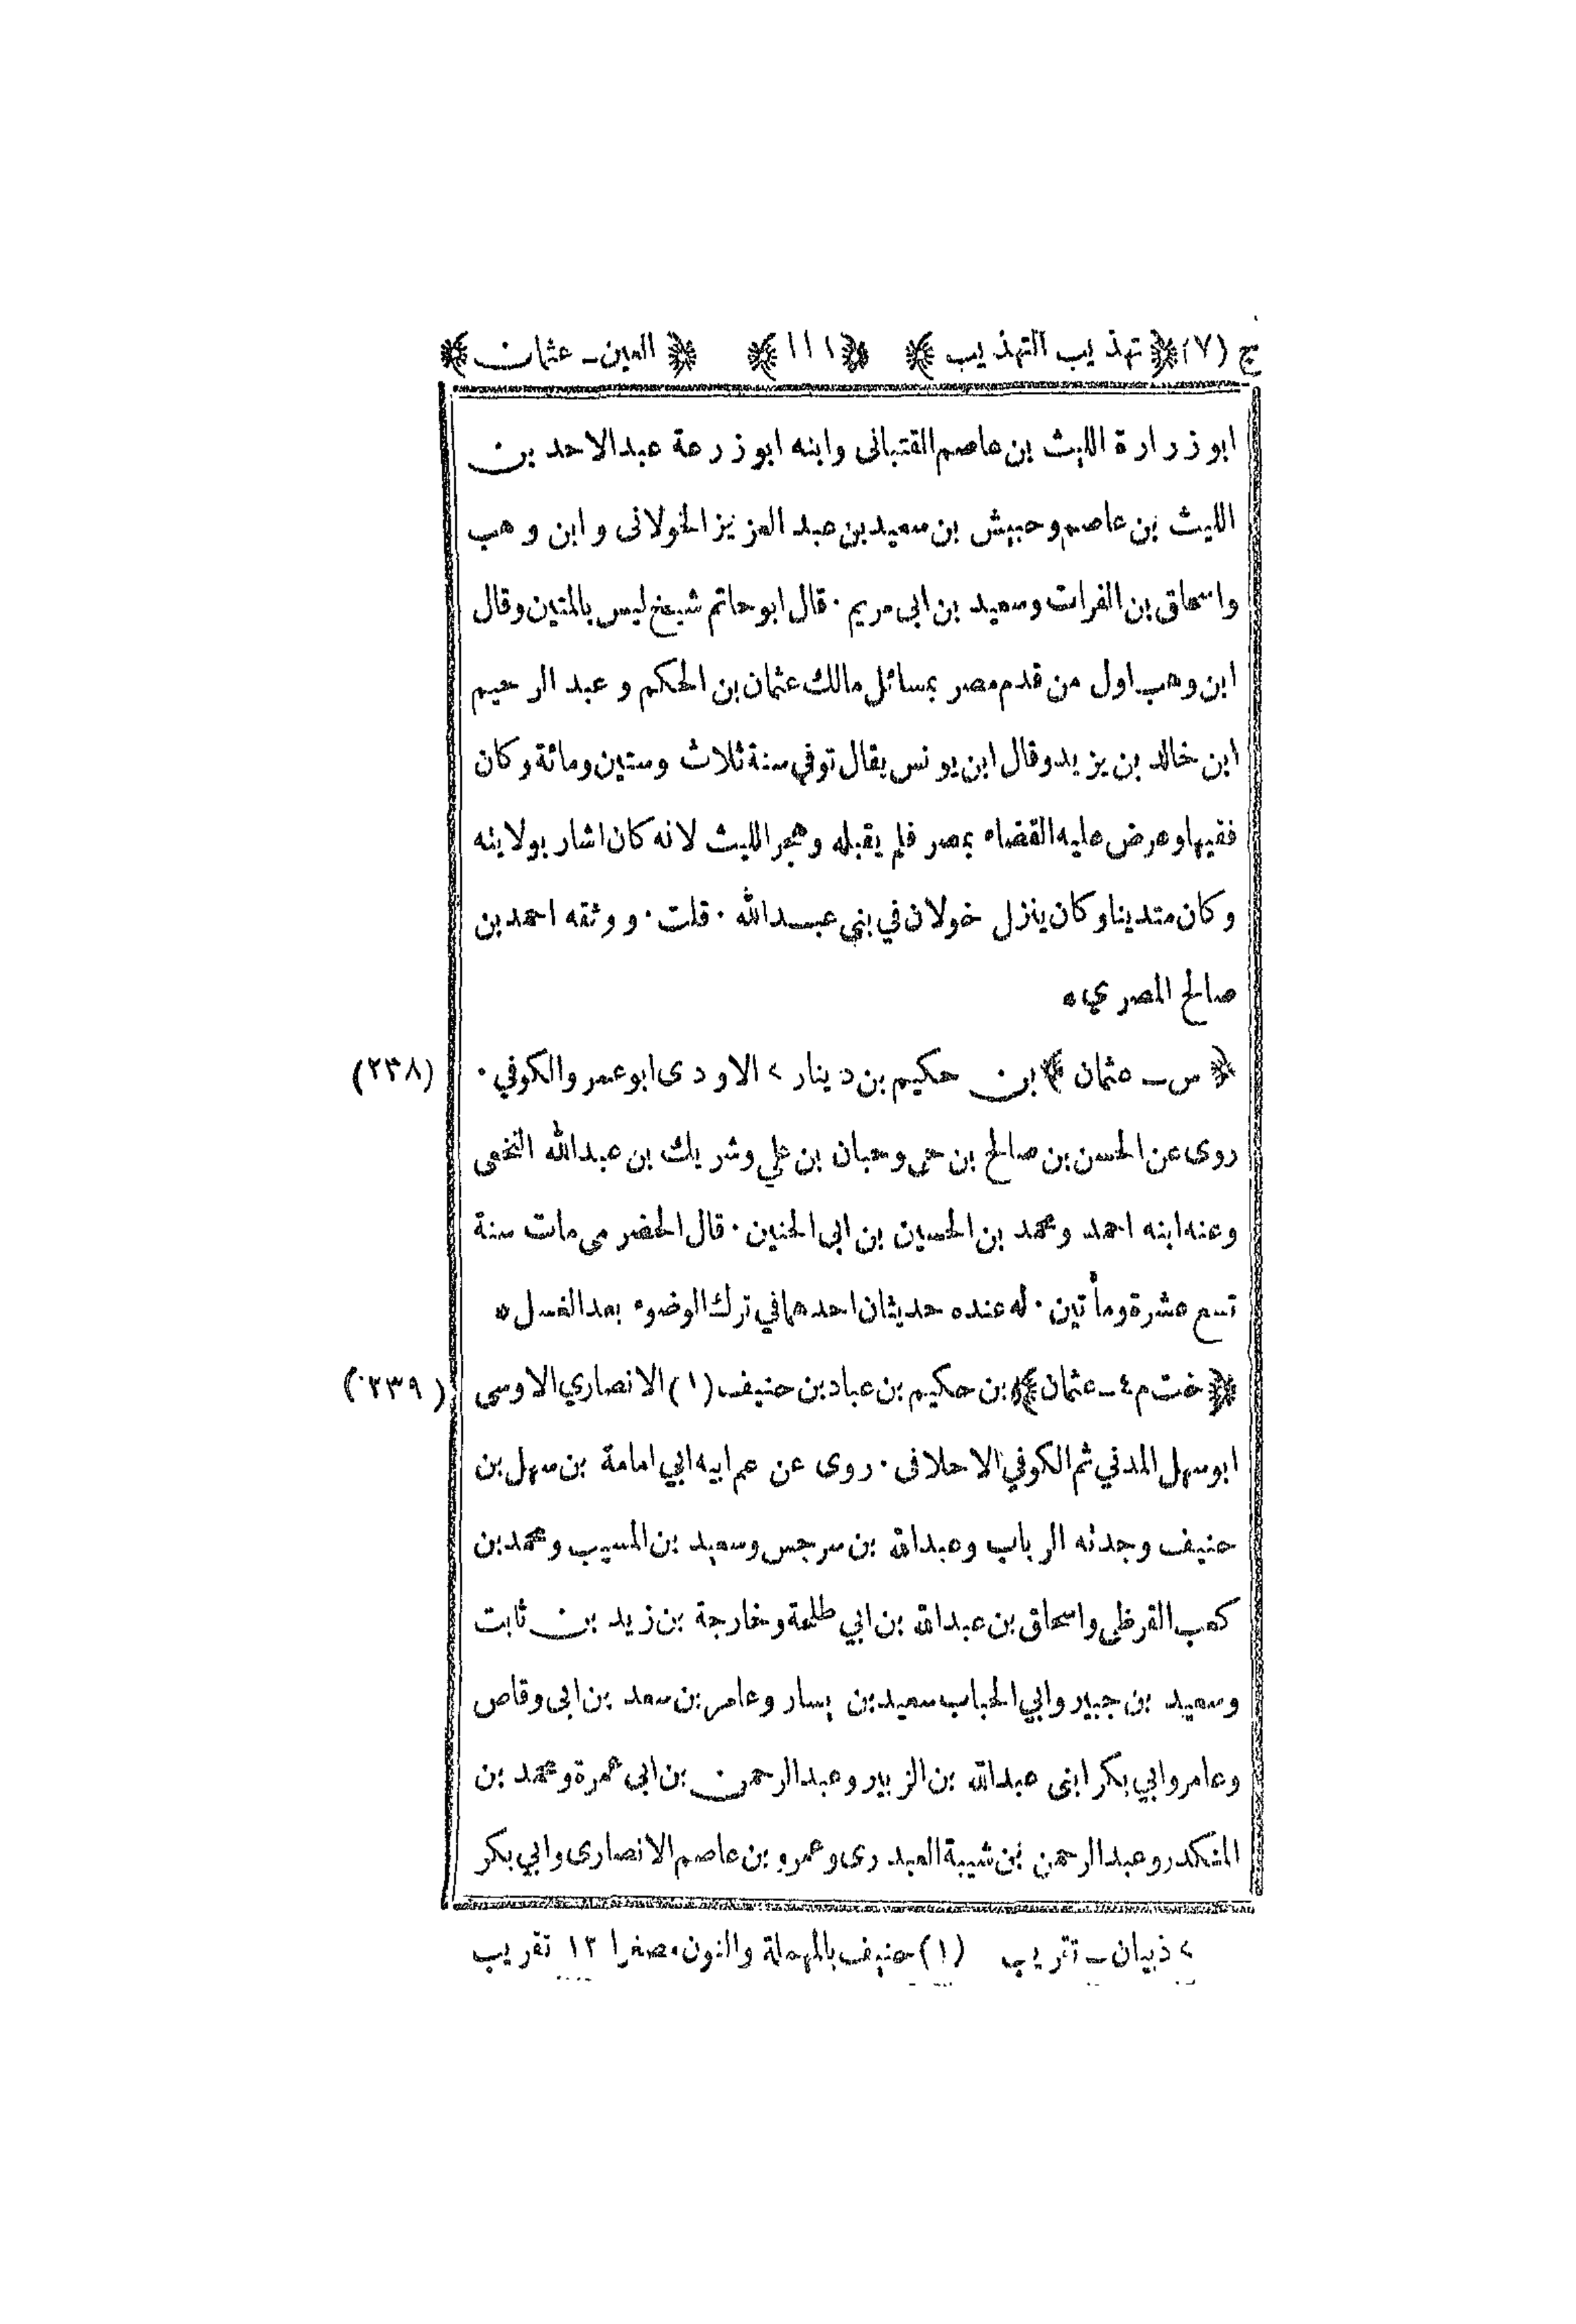 ج (٧) ﴿ تهذيب التهذيب ﴾ ﴿ ١١١ ﴾ ﴿ العين ـ عثمان ﴾
ابو زرارة الليث بن عاصم القتبانى وابنه ابو زرعة عبد الاحد بن
الليث بن عاصم وحبيش بن سعيد بن عبد العزيز الخولانى و ابن وهب
واسحاق بن الفرات وسعيد بن ابى مريم ٠ قال ابو حاتم شيخ ليس بالمتين وقال
ابن وهب اول من قدم مصر بمسائل مالك عثمان بن الحكم و عبد الرحيم
ابن خالد بن يزيد وقال ابن يونس يقال توفي سنة ثلاث وستين ومائة وكان
فقيها وعرض عليه القضاء بمصر فلم يقبله وهجر الليث لانه كان اشار بولايته
وكان متدينا وكان ينزل خولان في بني عبد الله ٠ قلت ٠ و وثقه احمد بن
صالح المصري ٥
﴿ س ـ عثمان ﴾ بن حكيم بن دينار > الاودى ابو عمر والكوفي ٠ (٢٣٨)
روى عن الحسن بن صالح بن حى وحبان بن علي وشريك بن عبد الله النخعى
وعنه ابنه احمد ومحمد بن الحسين بن ابى الحنين ٠ قال الحضرمى مات سنة
تسع عشرة ومأتين ٠ له عنده حديثان احدهما في ترك الوضوء بعد الغسل ٥
﴿ خت م ٤ ـ عثمان ﴾ بن حكيم بن عباد بن حنيف (١) الانصاري الاوسى (٢٣٩)
ابو سهل المدني ثم الكوفي الاحلافى ٠ روى عن عم ابيه ابي امامة بن سهل بن
حنيف وجدته الرباب وعبد الله بن سرجس وسعيد بن المسيب ومحمد بن
كعب القرظى واسحاق بن عبد الله بن ابي طلحة وخارجة بن زيد بن ثابت
وسعيد بن جبير وابي الحباب سعيد بن يسار وعامر بن سعد بن ابى وقاص
وعامر وابي بكر ابنى عبد الله بن الزبير وعبد الرحمن بن ابى عمرة ومحمد بن
المنكدر وعبد الرحمن بن شيبة العبدرى وعمرو بن عاصم الانصارى وابي بكر
> ذبيان ـ تقريب (١) حنيف بالمهملة والنون مصغرا ١٢ تقريب